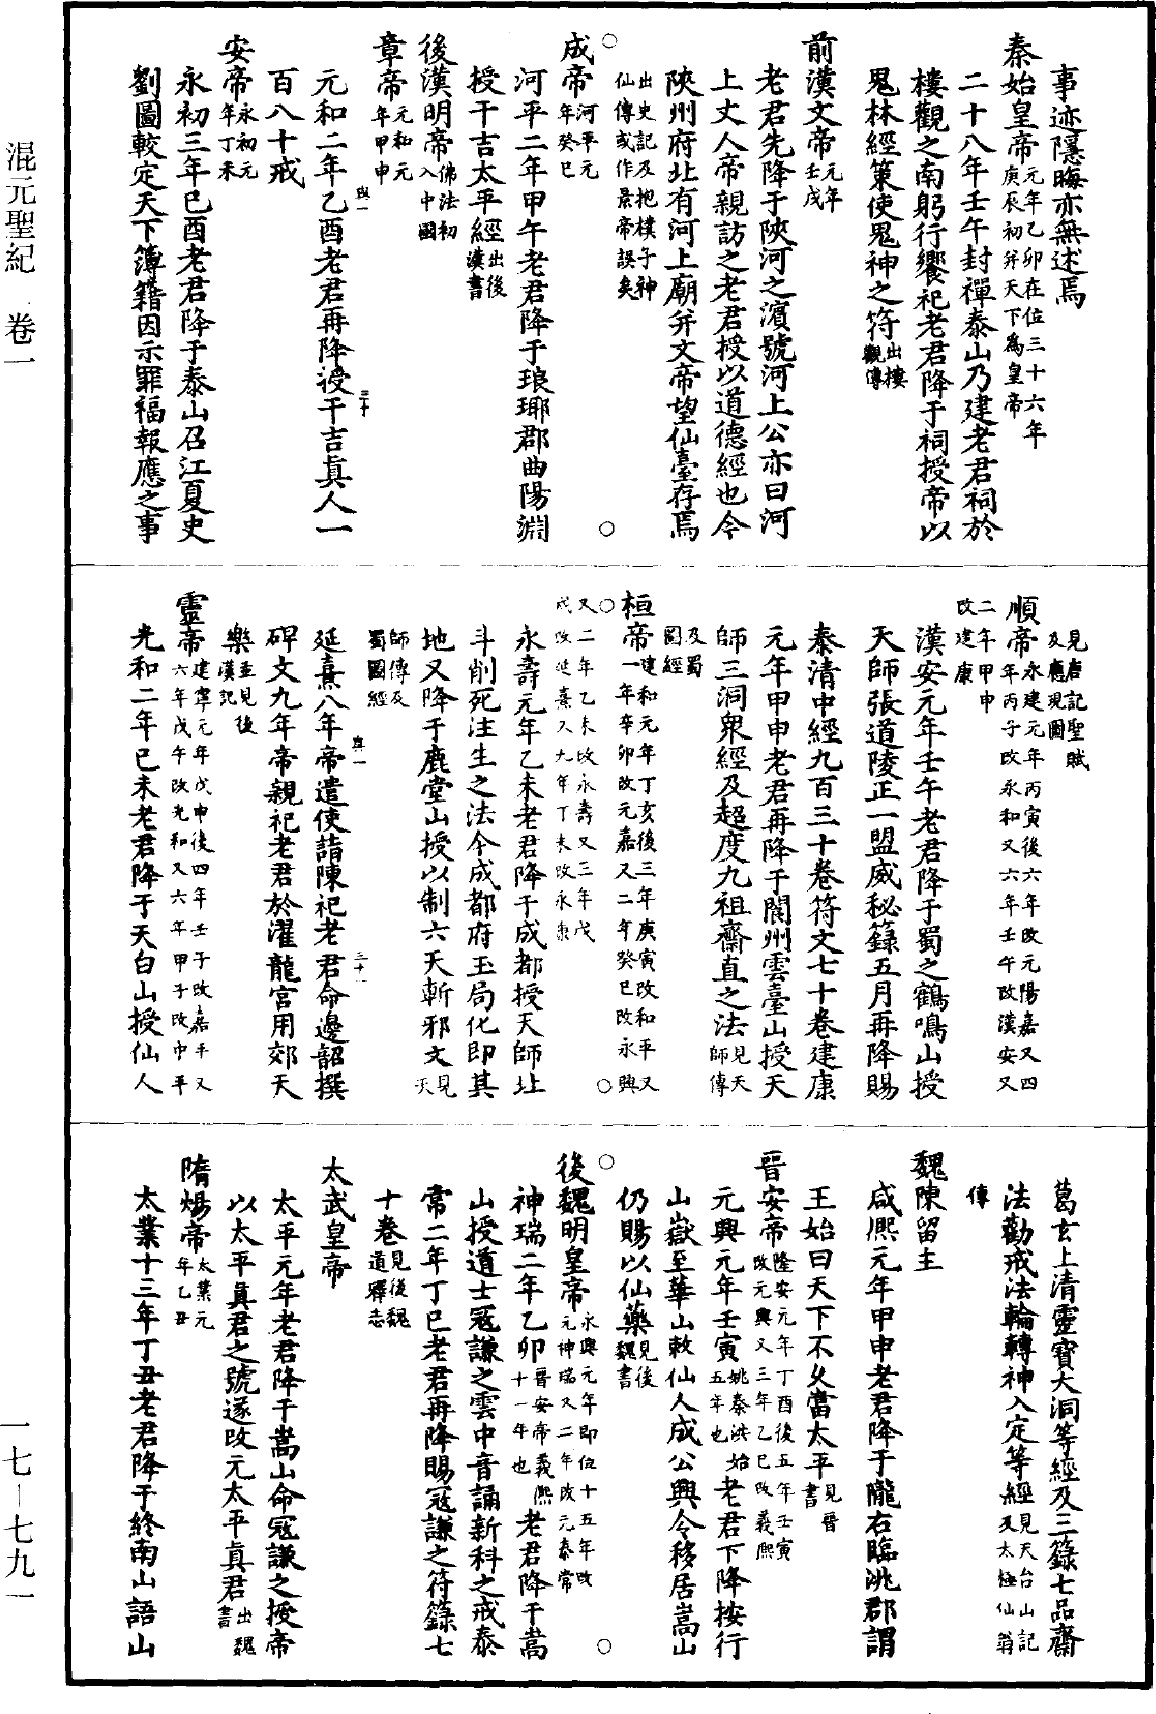 混元聖紀　卷一
一七—七九一
事迹隱晦亦無述焉
秦始皇帝元年乙卯在位三十六年庚辰初并天下為皇帝
二十八年壬午封禪泰山乃建老君祠於
樓觀之南躬行饗祀老君降于祠授帝以
鬼林經策使鬼神之符出樓觀傳
前漢文帝元年壬戌
老君先降于陝河之濱號河上公亦曰河
上丈人帝親訪之老君授以道德經也今
陝州府北有河上廟并文帝望仙臺存焉
出史記及抱樸子神仙傳或作景帝誤矣
成帝河平元年癸巳
河平二年甲午老君降于琅琊郡曲陽淵
授干吉太平經出後漢書
後漢明帝佛法初入中國
章帝元和元年甲申
元和二年乙酉老君再降授干吉真人一
百八十戒
安帝永初元年丁未
永初三年己酉老君降于泰山召江夏史
劉圖較定天下簿籍因示罪福報應之事
見唐記聖賦及應現圖
順帝永建元年丙寅後六年改元陽嘉又四年丙子改永和又六年壬午改漢安又二年甲申改建康
漢安元年壬午老君降于蜀之鶴鳴山授
天師張道陵正一盟威秘籙五月再降賜
泰清中經九百三十卷符文七十卷建康
元年甲申老君再降于閬州雲臺山授天
師三洞眾經及超度九祖齋直之法見天師傳及蜀圖經
桓帝建和元年丁亥後三年庚寅改和平又一年辛卯改元嘉又二年癸巳改永興又二年乙未改永壽又三年戊戌改延熹又九年丁未改永康
永壽元年乙未老君降于成都授天師北
斗削死注生之法今成都府玉局化即其
地又降于鹿堂山授以制六天斬邪文見天師傳及蜀圖經
延熹八年帝遣使詣陳祀老君命邊韶撰
碑文九年帝親祀老君於濯龍宮用郊天
樂並見後漢記
靈帝建寧元年戊申後四年壬子改嘉平又六年戊午改光和又六年甲子改中平
光和二年己未老君降于天台山授仙人
葛玄上清靈寶大洞等經及三籙七品齋
法勸戒法輪轉神入定等經見天台山記及太極仙翁傳
魏陳留主
咸熙元年甲申老君降于隴右臨洮郡謂
王始曰天下不久當太平見晉書
晉安帝隆安元年丁酉後五年壬寅改元興又三年乙巳改義熙
元興元年壬寅姚秦洪始五年也老君下降按行
山嶽至華山敕仙人成公興令移居嵩山
仍賜以仙藥見後魏書
後魏明皇帝永興元年即位十五年改元神瑞又二年改元泰常
神瑞二年乙卯晉安帝義熙十一年也老君降于嵩
山授道士寇謙之雲中音誦新科之戒泰
常二年丁巳老君再降賜寇謙之符籙七
十卷見後魏道釋志
太武皇帝
太平元年老君降于嵩山命寇謙之授帝
以太平真君之號遂改元太平真君出魏書
隋煬帝太業元年乙丑
太業十三年丁丑老君降于終南山語山